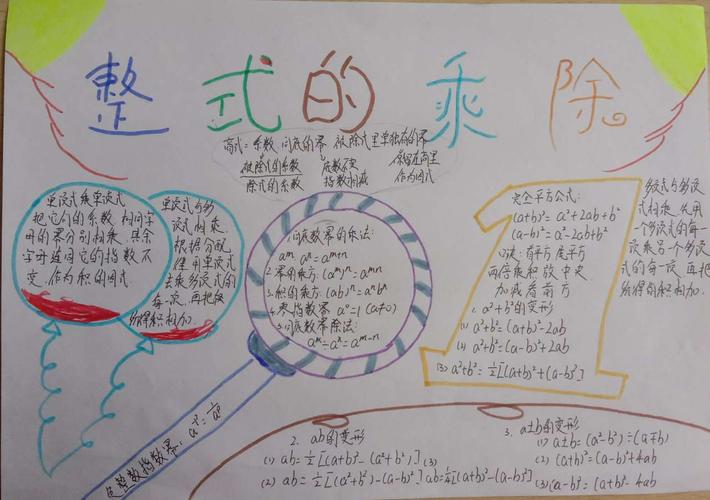 整式的乘除
商式=系数·同底的幂·被除式里单独有的幂
被除式的系数 底数不变 保留在商里
除式的系数 指数相减 作为因式
单项式乘单项式
把它们的系数 相同字
母的幂分别相乘 其余
字母连同它的指数不
变 作为积的因式
单项式与多
项式相乘
根据分配
律用单项式
去乘多项式的
每一项 再把
所得积相加
1.同底数幂的乘法:
aᵐ·aⁿ=aᵐ⁺ⁿ
2.幂的乘方 (aᵐ)ⁿ=aᵐⁿ
3.积的乘方 (ab)ⁿ=aⁿbⁿ
4.零指数幂 a⁰=1 (a≠0)
5.同底数幂除法:
aᵐ÷aⁿ=aᵐ⁻ⁿ
负整数指数幂:
完全平方公式:
(a+b)²=a²+2ab+b²
(a-b)²=a²-2ab+b²
口诀:首平方 尾平方
两倍乘积放中央
加减看前方
1. a²+b²的变形
(1) a²+b²=(a+b)²-2ab
(2) a²+b²=(a-b)²+2ab
(3) a²+b²=½[(a+b)²+(a-b)²]
多项式与多项
式相乘 先用
一个多项式的每
一项乘另一个多项
式的每一项 再把
所得的积相加
2. ab的变形
(1) ab=½[(a+b)²-(a²+b²)] (3)
(2) ab=½[(a²+b²)-(a-b)²] ab=¼[(a+b)²-(a-b)²]
3. a±b的变形
(1) a±b=(a²-b²)÷(a∓b)
(2) (a+b)²=(a-b)²+4ab
(3) (a-b)²=(a+b)²-4ab